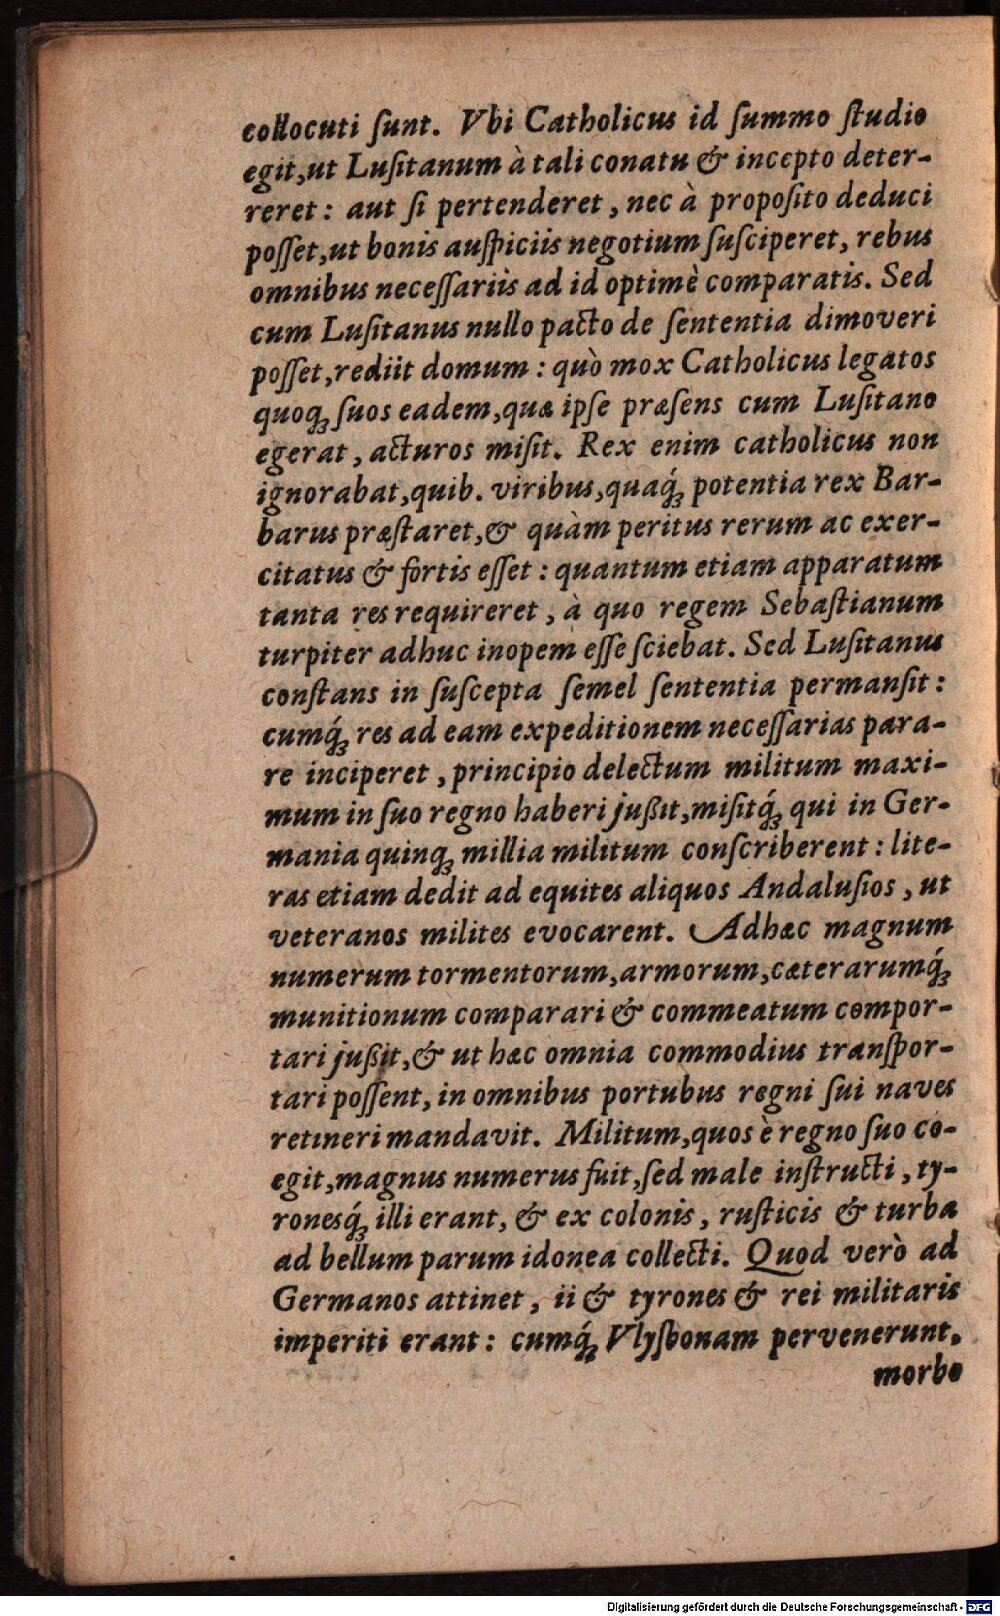 collocuti ſunt. Vbi Catholicus id ſummo ſtudio
egit,ut Luſitanum à tali conatu & incepto deter-
reret: aut ſi pertenderet, nec à propoſito deduci
poſſet,ut bonis auſpiciis negotium ſuſciperet, rebus
omnibus neceſſariis ad id optimè comparatis. Sed
cum Luſitanus nullo pacto de ſententia dimoveri
poſſet,rediit domum: quò mox Catholicus legatos
quoq́ꝫ ſuos eadem,quæ ipſe præſens cum Luſitano
egerat, acturos miſit. Rex enim catholicus non
ignorabat,quib. viribus,quaq́ꝫ potentia rex Bar-
barus præſtaret,& quàm peritus rerum ac exer-
citatus & fortis eſſet: quantum etiam apparatum
tanta res requireret, à quo regem Sebaſtianum
turpiter adhuc inopem eſſe ſciebat. Sed Luſitanus
conſtans in ſuſcepta ſemel ſententia permanſit:
cumq́ꝫ res ad eam expeditionem neceſſarias para-
re inciperet, principio delectum militum maxi-
mum in ſuo regno haberi jußit,miſitq́ꝫ qui in Ger-
mania quinqꝫ millia militum conſcriberent: lite-
ras etiam dedit ad equites aliquos Andaluſios, ut
veteranos milites evocarent. Adhæc magnum
numerum tormentorum,armorum,cæterarumq́ꝫ
munitionum comparari & commeatum compor-
tari jußit,& ut hæc omnia commodius tranſpor-
tari poſſent, in omnibus portubus regni ſui naves
retineri mandavit. Militum,quos è regno ſuo co-
egit,magnus numerus fuit,ſed male inſtructi, ty-
ronesq́ꝫ illi erant, & ex colonis, ruſticis & turba
ad bellum parum idonea collecti. Quod verò ad
Germanos attinet, ii & tyrones & rei militaris
imperiti erant: cumq́ꝫ Vlyſbonam pervenerunt,
morbo
Digitalisierung gefördert durch die Deutsche Forschungsgemeinschaft - DFG